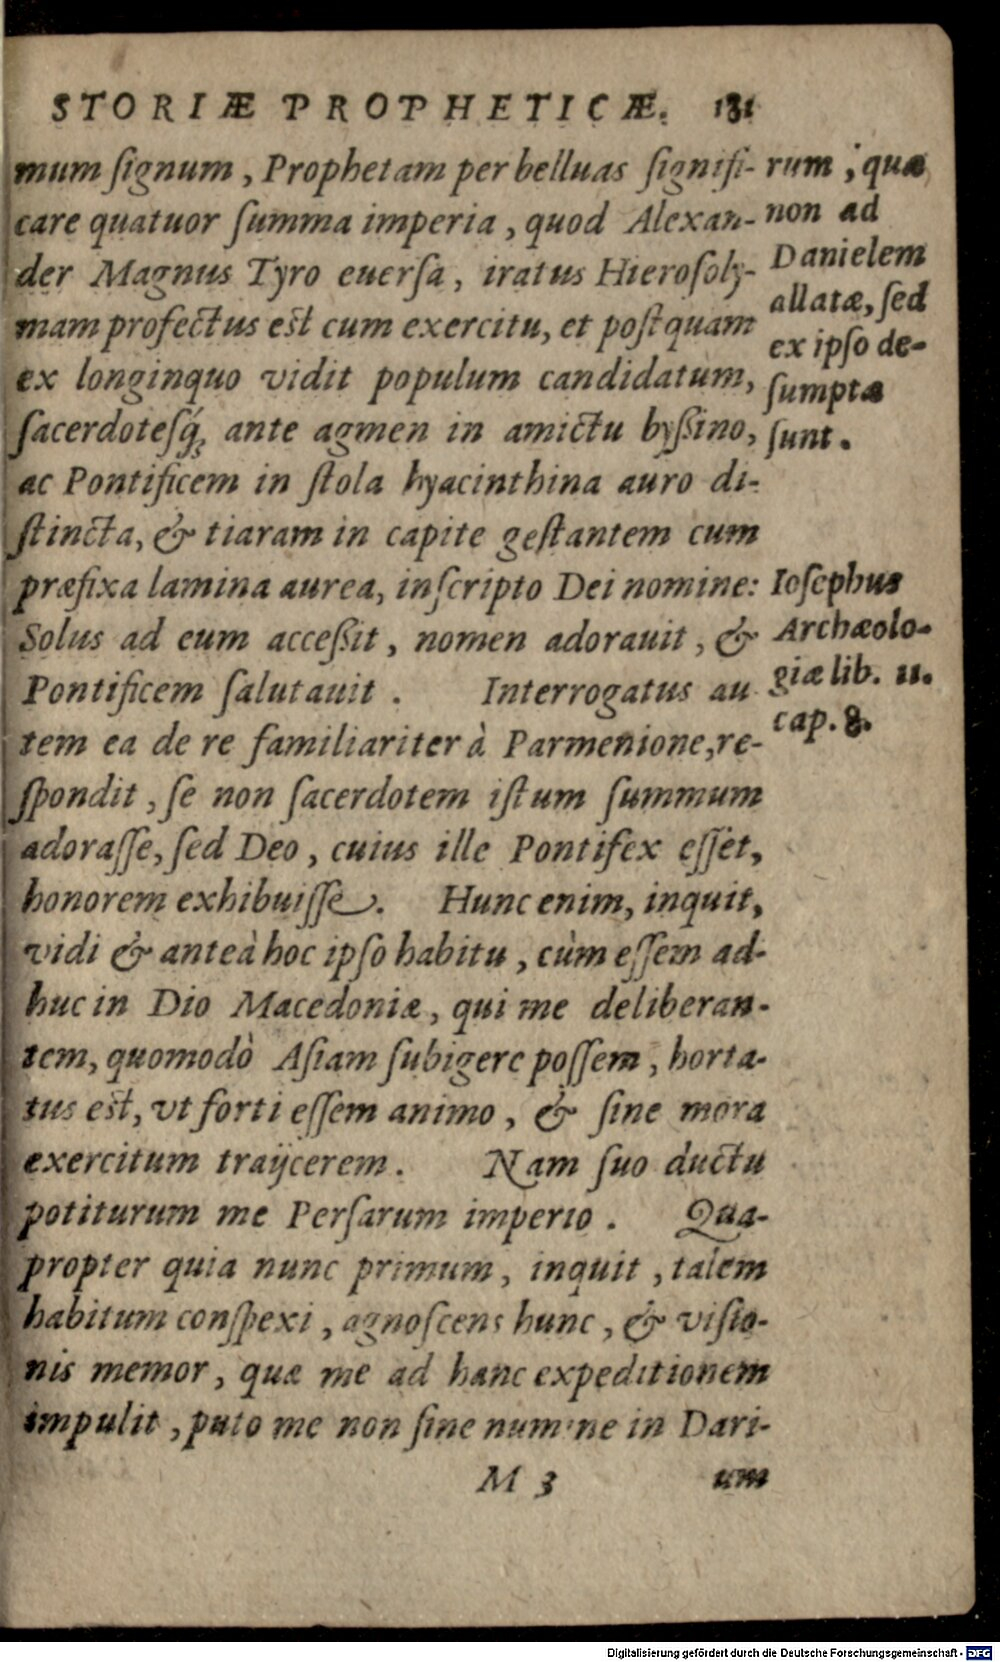 STORIÆ PROPHETICÆ. 131
mum ſignum, Prophetam per belluas ſignifi-
care quatuor ſumma imperia, quod Alexan-
der Magnus Tyro euerſa, iratus Hieroſoly-
mam profectus est cum exercitu, et poſtquam
ex longinquo vidit populum candidatum,
ſacerdoteſq́; ante agmen in amictu byßino,
ac Pontificem in ſtola hyacinthina auro di-
ſtincta, & tiaram in capite geſtantem cum
præfixa lamina aurea, inſcripto Dei nomine:
Solus ad eum acceßit, nomen adorauit, &
Pontificem ſalutauit. Interrogatus au
tem ea de re familiariter à Parmenione, re-
ſpondit, ſe non ſacerdotem iſtum ſummum
adoraſſe, ſed Deo, cuius ille Pontifex eſſet,
honorem exhibuiſſe. Hunc enim, inquit,
vidi & anteà hoc ipſo habitu, cùm eſſem ad-
huc in Dio Macedoniæ, qui me deliberan-
tem, quomodò Aſiam ſubigere poſſem, horta-
tus est, vt forti eſſem animo, & ſine mora
exercitum traijcerem. Nam ſuo ductu
potiturum me Perſarum imperio. Qua-
propter quia nunc primum, inquit, talem
habitum conſpexi, agnoſcens hunc, & viſio-
nis memor, quæ me ad hanc expeditionem
impulit, puto me non ſine numine in Dari-
M 3 um
rum; quæ
non ad
Danielem
allatæ, ſed
ex ipſo de-
ſumptæ
ſunt.
Ioſephus
Archæolo-
giæ lib. 11.
cap. 8.
Digitalisierung gefördert durch die Deutsche Forschungsgemeinschaft - DFG